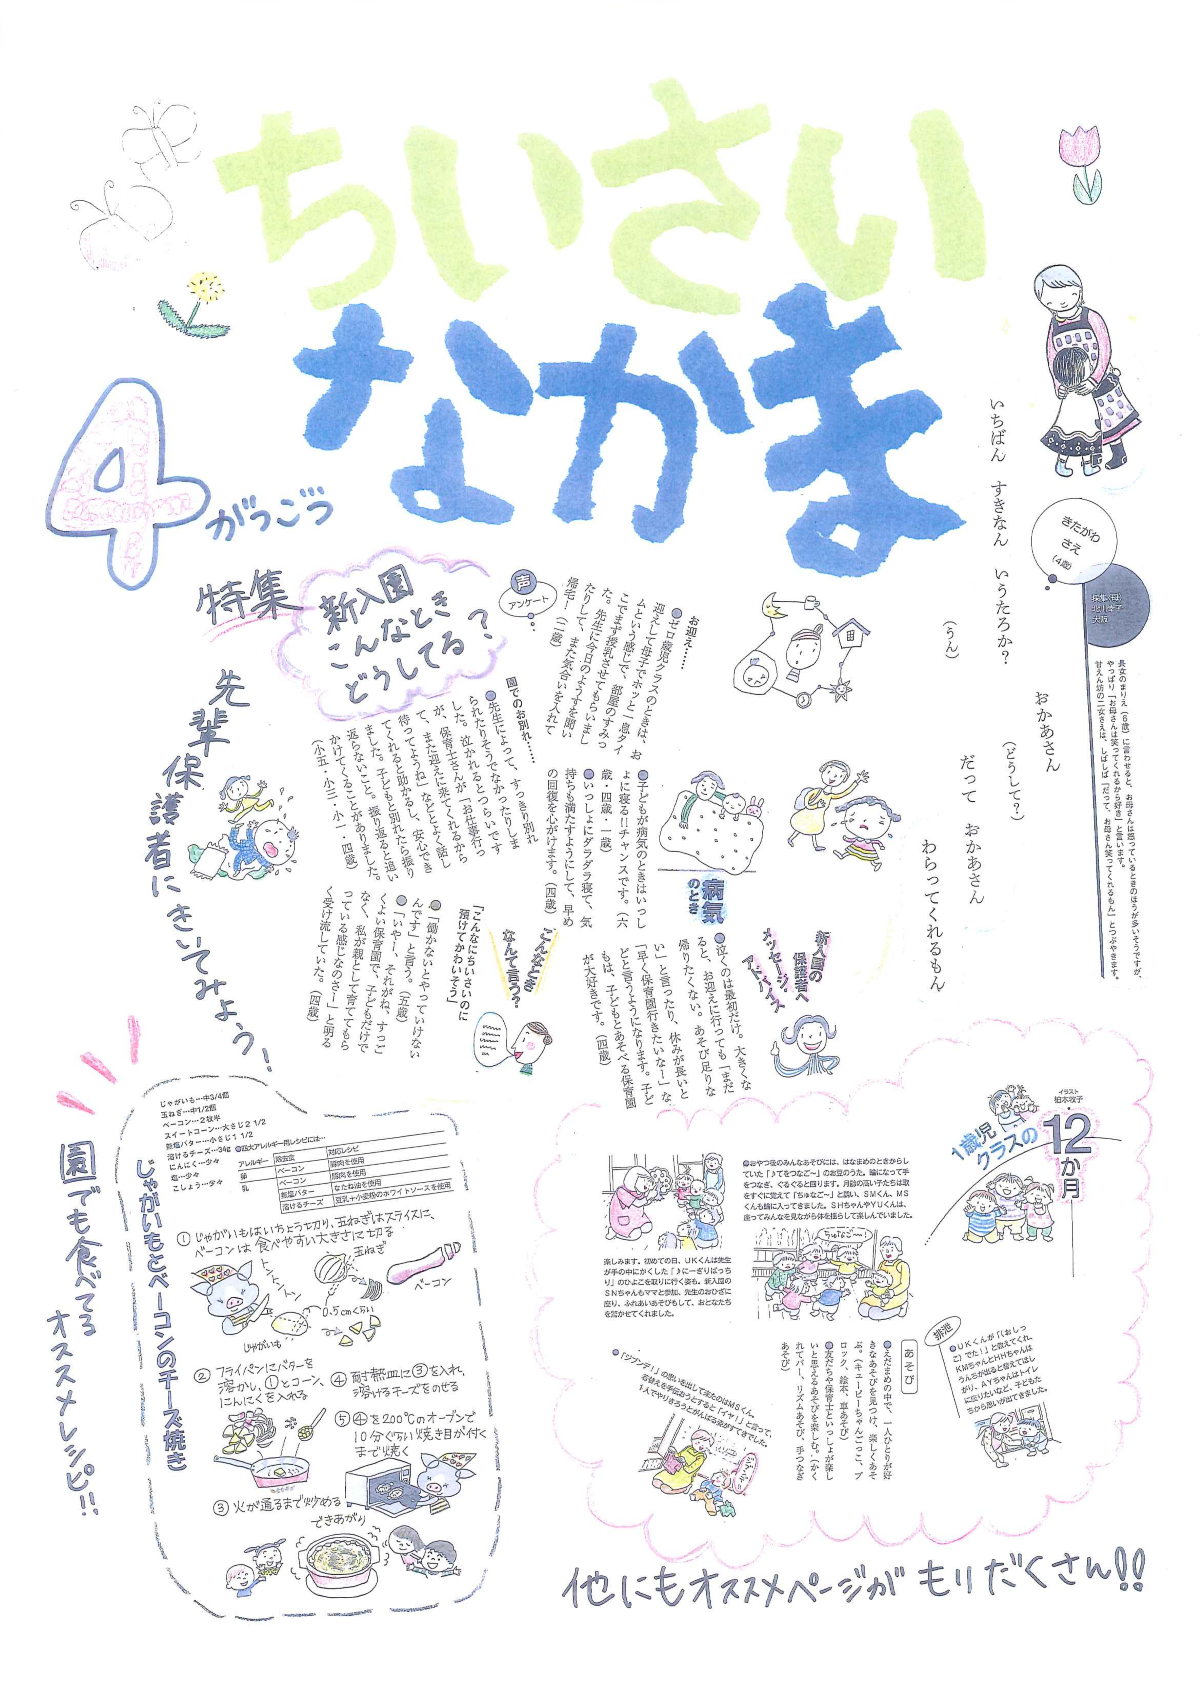 ちいさい
なかま
4がつごう
いちばん　すきなん　いうたろか？
（うん）
おかあさん
（どうして？）
だって　おかあさん
わらってくれるもん
きたがわ
さえ
（4歳）
大阪
長女のまりえ（6歳）に言わせると、お母さんは怒っているときのほうが多いそうですが、
やっぱり「お母さんは笑ってくれるから好き」と言います。
甘えん坊の二女さえは、しばしば「だって、お母さん笑ってくれるもん」とつぶやきます。
特集
新入園
こんなとき
どうしてる？
先輩保護者にきいてみよう！
声
アンケート
お迎え……
●ゼロ歳児クラスのときは、お
迎えして母子でホッと一息タイ
ムという感じで、部屋のすみっ
こでまず授乳させてもらいまし
た。先生に今日のようすを聞い
たりして、また気合いを入れて
帰宅！（二歳）
園でのお別れ……
●先生によって、すっきり別れ
られたりそうでなかったりしま
した。泣かれるとつらいです
が、保育士さんが「お仕事行っ
て、また迎えに来てくれるから
待ってようね」などとよく話し
てくれると助かるし、安心でき
ました。子どもと別れたら振り
返らないこと。振り返ると追い
かけてくることがありました。
（小五・小三・小一・四歳）
病気
のとき
●子どもが病気のときはいっし
ょに寝る!!チャンスです。（六
歳・四歳・一歳）
●いっしょにダラダラ寝て、気
持ちも満たすようにして、早め
の回復を心がけます。（四歳）
こんなとき
なんて言う？
「こんなにちいさいのに
預けてかわいそう」
●「働かないとやっていけない
んです」と言う。（五歳）
●「いやー、それがね、すっご
くよい保育園で、子どもだけで
なく、私が親として育ててもら
っている感じなのさー」と明る
く受け流していた。（四歳）
新入園の
保護者へ
メッセージ・
アドバイス
●泣くのは最初だけ。大きくな
ると、お迎えに行っても「まだ
帰りたくない。あそび足りな
い」と言ったり、休みが長いと
「早く保育園行きたいな！」な
どと言うようになります。子ど
もは、子どもとあそべる保育園
が大好きです。（四歳）
園でも食べてる
オススメレシピ!!
じゃがいもとベーコンのチーズ焼き
じゃがいも…中3/4個
玉ねぎ…中1/2個
ベーコン…2枚半
スイートコーン…大さじ2 1/2
無塩バター…小さじ1 1/2
溶けるチーズ…34g
にんにく…少々
塩…少々
こしょう…少々
●四大アレルギー用レシピには…
アレルギー　除去食　対応レシピ
卵　ベーコン　豚肉を使用
乳　ベーコン　豚肉を使用
無塩バター　なたね油を使用
溶けるチーズ　豆乳＋小麦粉のホワイトソースを使用
①じゃがいもはいちょう切り、玉ねぎはスライスに、
ベーコンは食べやすい大きさに切る
トントントン
玉ねぎ
ベーコン
0.5cmくらい
じゃがいも
②フライパンにバターを
溶かし、①とコーン、
にんにくを入れる
③火が通るまで炒める
④耐熱皿に③を入れ、
溶けるチーズをのせる
⑤④を200℃のオーブンで
10分ぐらい焼き目が付く
まで焼く
できあがり
イラスト
柏木牧子
1歳児
クラスの
12か月
●おやつ後のみんなあそびには、はなまめのときからし
ていた「♪てをつなご〜」のお豆のうた。輪になって手
をつなぎ、ぐるぐると回ります。月齢の高い子たちは歌
をすぐに覚えて「ちゅなご〜」と誘い、SMくん、MS
くんも輪に入ってきました。SHちゃんやYUくんは、
座ってみんなを見ながら体を揺らして楽しんでいました。
ちゅなご〜！
楽しみます。初めての日、UKくんは先生
が手の中にかくした「♪にーぎりぱっちり」
のひよこを取りに行く姿も。新入園の
SNちゃんもママと参加、先生のおひざに
座り、ふれあいあそびもして、おとなたち
を驚かせてくれました。
排泄
●UKくんが「（おしっ
こ）でた！」と教えてくれ、
KMちゃんとHHちゃんは
うんちが出ると替えてほし
がり、AYちゃんはトイレ
に座りたいなど、子どもた
ちから思いが出てきました。
あそび
●えだまめの中で、一人ひとりが好
きなあそびを見つけ、楽しくあそ
ぶ。（キューピーちゃんごっこ、ブ
ロック、絵本、草あそび）
●友だちや保育士といっしょが楽し
いと思えるあそびを楽しむ。（かく
れてバー、リズムあそび、手つなぎ
あそび）
●「ジブンデ！」の思いを出して来たのはMSくん。
着替えを手伝おうとすると「イヤ！」と言って、
1人でやりきろうとがんばる姿がすてきでした。
他にもオススメページがもりだくさん!!